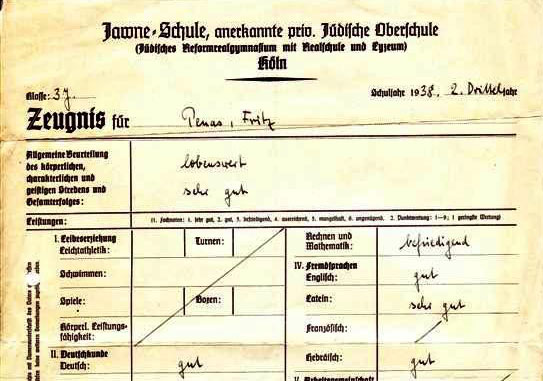 Jawne-Schule, anerkannte priv. Jüdische Oberschule
(Jüdisches Reformrealgymnasium mit Realschule und Lyzeum)
Köln
Klasse: 3J. Schuljahr 1938. 2. Dritteljahr
Zeugnis für Penas, Fritz
Allgemeine Beurteilung
des körperlichen,
charakterlichen und
geistigen Strebens und
Gesamterfolges:
lobenswert
sehr gut
Leistungen: (1. Fachnoten: 1. sehr gut, 2. gut, 3. befriedigend, 4. ausreichend, 5. mangelhaft, 6. ungenügend. 2. Punktwertung: 1—9; 1 geringste Wertung)
I. Leibeserziehung
Leichtathletik: Turnen:
Schwimmen:
Spiele: Boxen:
Körperl. Leistungs-
fähigkeit:
II. Deutschkunde
Deutsch: gut
Rechnen und
Mathematik: befriedigend
IV. Fremdsprachen
Englisch: gut
Latein: sehr gut
Französisch:
Hebräisch: gut
V. Arbeitsgemeinschaft